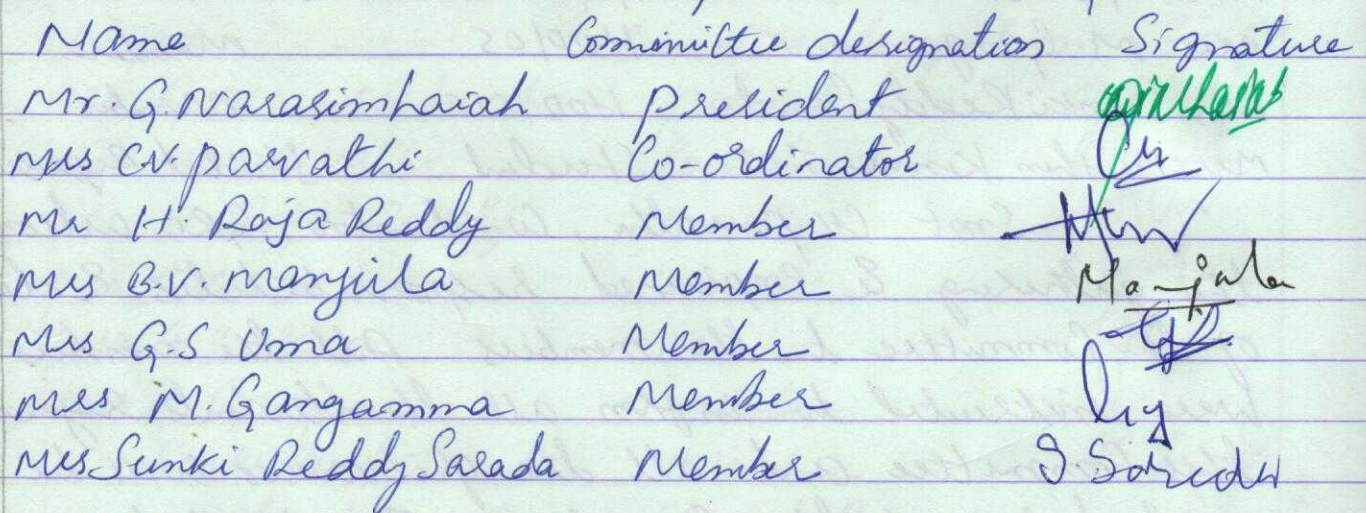 Name Committee designation Signature
Mr. G. Narasimhaiah President
Mrs C.V. Parvathi Co-ordinator
Mr H. Raja Reddy Member
Mrs B.V. Manjula Member Manjula
Mrs G.S Uma Member
Mrs M. Gangamma Member
Mrs Sunki Reddy Sarada Member S. Sarada